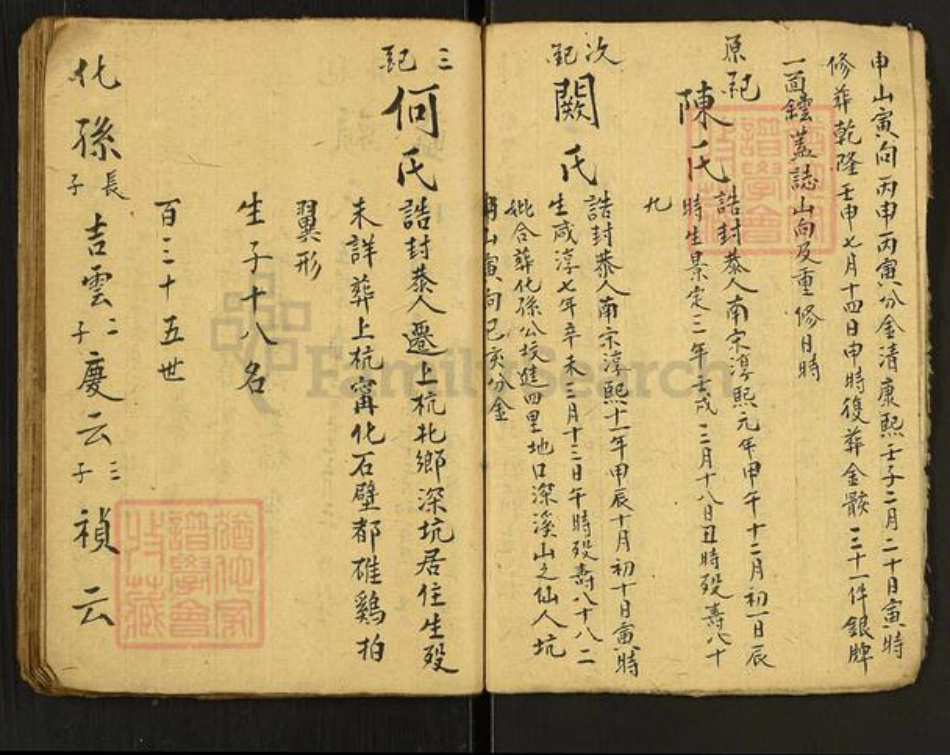 申山寅向丙申丙寅分金清康熙壬子二月二十日寅時
修葬乾隆壬申七月十四日申時復葬金骸三十一件銀牌
一面鐘蓋誌山向及重修日時
原妣
陳氏
誥封恭人南宋淳熙元年甲午十二月初一日辰
時生景定三年壬戌二月十八日丑時歿壽八十
九
次妣
闕氏
誥封恭人南宋淳熙十一年甲辰十月初十日寅時
生咸淳七年辛未三月十三日午時歿壽八十八二
妣合葬化孫公坟進四里地口深溪山之仙人坑
申山寅向己亥分金
三妣
何氏
誥封恭人遷上杭北鄉深坑居住生歿
未詳葬上杭甯化石壁都碓鷄拍
翼形
生子十八名
百三十五世
化孫
長子吉雲二子慶云三子禎云
FamilySearch